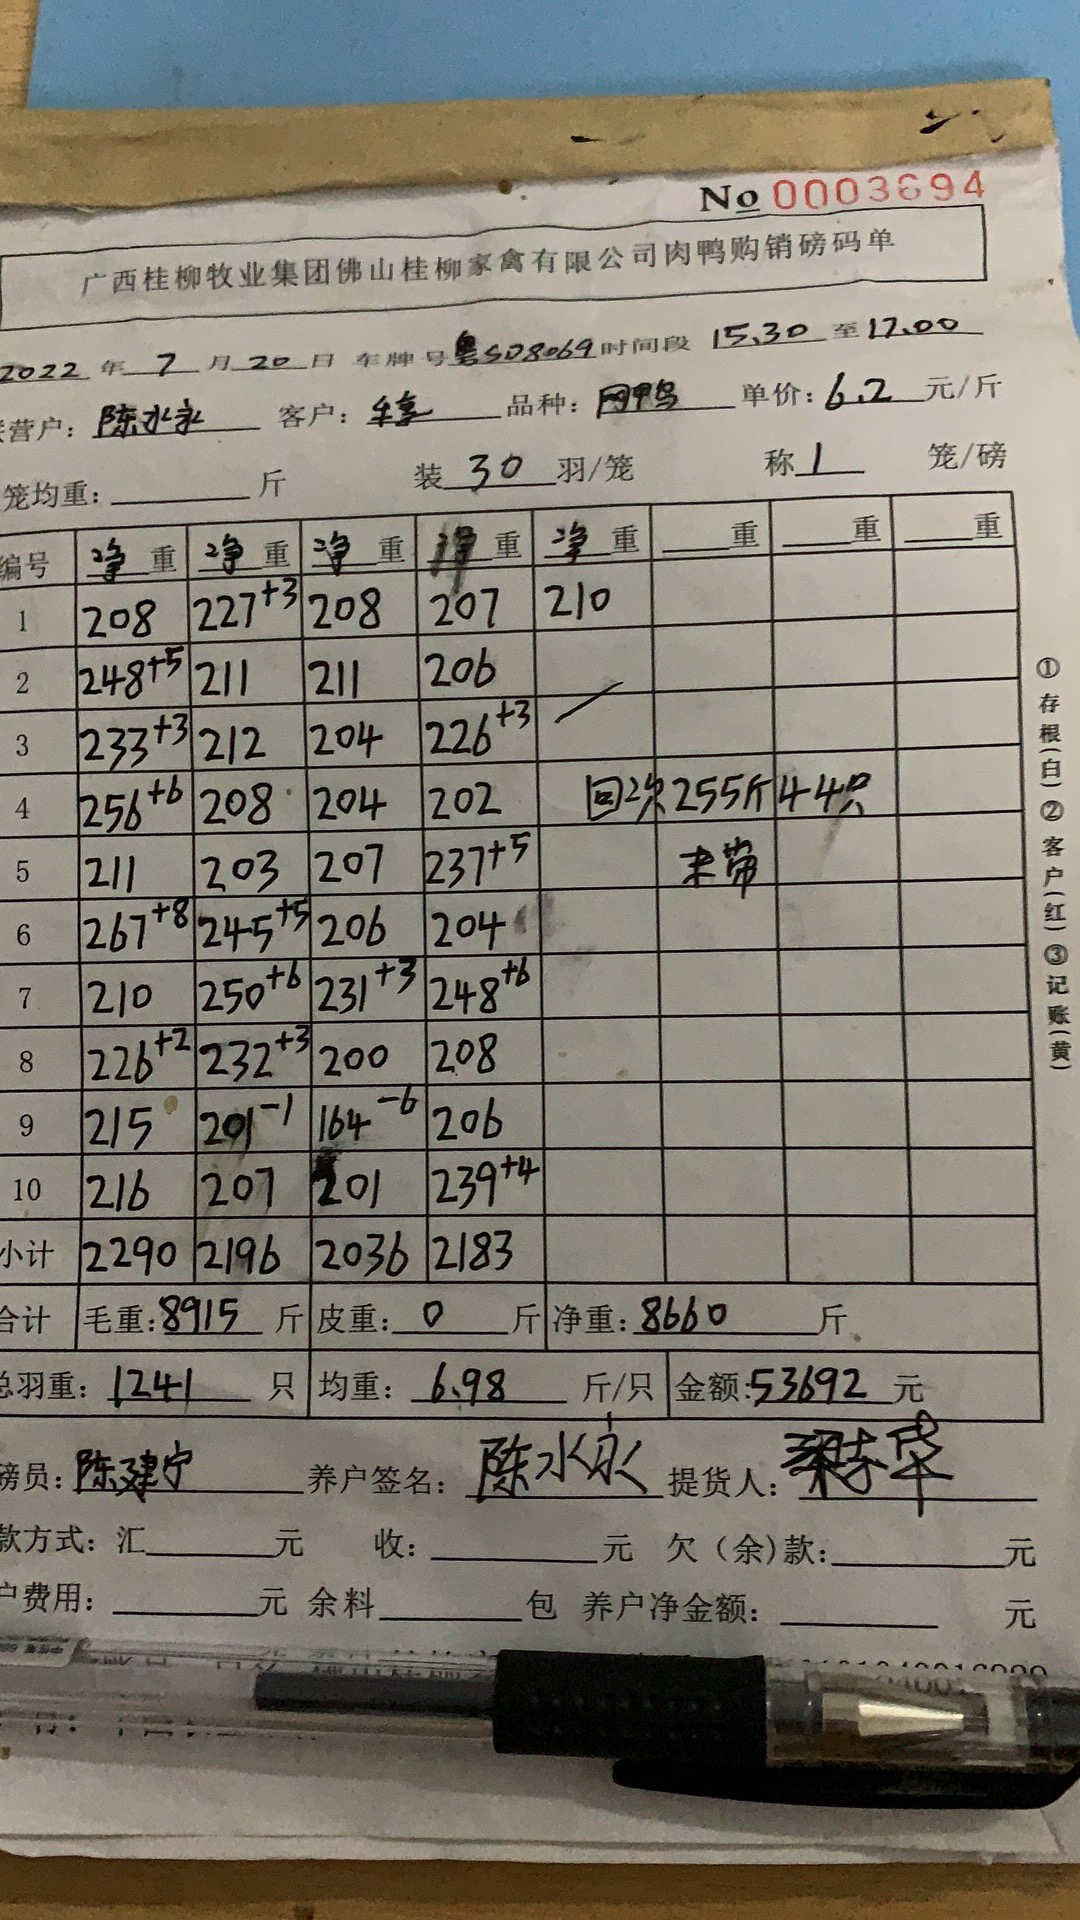 No 0003694
广西桂柳牧业集团佛山桂柳家禽有限公司肉鸭购销磅码单
2022 年 7 月 20 日 车牌号 粤S08069 时间段 15.30 至 17.00
营户: 陈水永 客户: 品种: 网鸭 单价: 6.2 元/斤
笼均重: 斤 装 30 羽/笼 称 1 笼/磅
编号 净重 净重 净重 净重 净重 重 重 重
1 208 227+3 208 207 210
2 248+5 211 211 206
3 233+3 212 204 226+3
4 256+6 208 204 202 回次255斤44只
5 211 203 207 237+5 未带
6 267+8 245+5 206 204
7 210 250+6 231+3 248+6
8 226+2 232+3 200 208
9 215 201-1 164-6 206
10 216 207 201 239+4
小计 2290 2196 2036 2183
合计 毛重: 8915 斤 皮重: 0 斤 净重: 8660 斤
总羽重: 1241 只 均重: 6.98 斤/只 金额: 53692 元
磅员: 陈建宁 养户签名: 陈水永 提货人:
款方式: 汇 元 收: 元 欠(余)款: 元
户费用: 元 余料 包 养户净金额: 元
①存根(白)②客户(红)③记账(黄)